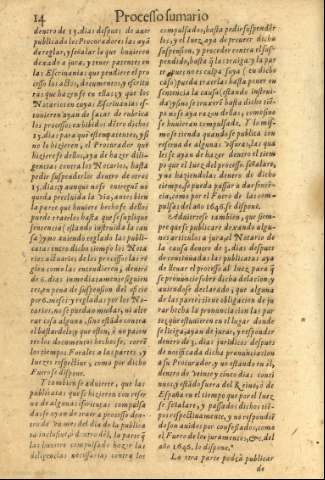 14 Processo sumario
dentro de 15. dias despues de auer
publicado los Procuradores las aya
de reglar, y señalar lo que huuieren
dexado a jura, y tener patentes en
las Escriuanias que pendiere el pro
cesso los actos, documentos, y escritu
ras que hazen fe en ellas; y que los
Notarios en cuyas Escriuanias es-
tuuieren ayan de sacar de rubrica
los processos exhibidos dentro de dichos
15. dias para que esten patentes, y si
no lo hizieren, el Procurador que
hiziere fe dellos, aya de hazer dili-
gencias contra los Notarios, hasta
pedir suspenderlos dentro de otros
15. dias; y aunque no se entregue no
queda precluida la via, antes bien
la parte que huuiere hecho fe dellos
puede traerlos hasta que se suplique
sentencia (estando instruida la cau
sa) y no auiendo reglado las publi-
catas dentro dicho tiempo los Nota
rios actuarios de los processos las re
glen como las entendieren, dentro
de 6. dias inmediatamente siguien
tes, en pena de suspension del oficio
por 6. meses; y regladas por los No-
tarios, no se puedan mudar, ni alte
rar cosa alguna, sino estado contra
el bastardelo; y que esten, o no paten
tes los documentos hechofe, corren
los tiempos Forales a las partes, y
Iuezes respectiue, como por dicho
Fuero se dispone.
Y tambien se aduierte, que las
publicatas que se hizieren con reser
ua de algunas escrituras compulsa
das se ayan de traer a processo den-
tro de 30. mes del dia de la publica
ta inclusiue, ò dentro dèl, la parte
las huuiere compulsado hazer las
diligencias necessarias contra los
compulsados, hasta pedir suspender
los, y el Iuez aya de proueer dicha
suspension, y proceder contra el sus-
pendido, hasta q̃ las traiga, y la par
te que no es culpa suya (en dicho
caso) pueda traerlas hasta pedir sen
tencia la causa (estando instrui-
da) y sino se traxere hasta dicho tiẽ-
po no se aya razon dellas, como sino
se huuieran compulsado. Y lo mis-
mo se tienda quando se publica con
reserua de algunas visuras, las que
les se ayan de hazer dentro el tiem
po que el Iuez del processo señalare,
y no haziendolas dentro de dicho
tiempo, se pueda passar a dar senten-
cia, como por el Fuero de las com-
pulsas del año 1646. se dispone.
Aduirtese tambien, que siem-
pre que se publicare dexando algu-
nos articulos a jura, el Notario de
la causa dentro de 3. dias despues
de continuadas las publicatas aya
de lleuar el processo al Iuez para q̃
se pronuncie sobre dicha delacion, y
auiendose declarado; que alguna de
las partes tiene obligacion de ju
rar hecha la pronunciacion las par
tes que estuuieren en el lugar donde
se litiga, ayan de jurar, y responder
dentro de 3. dias juridicos despues
de notificada dicha pronunciacion
a su Procurador, y no estando en èl,
dentro de veinte y cinco dias conti
nuos; y estando fuera del Reino, ò de
España en el tiempo que por el Iuez
se señalare, y passados dichos tiẽ-
pos respectiuamente, y no respondiẽ
do son auidos por confessados, como
el Fuero de los juramentos, &c. del
año 1646. lo dispone.
La otra parte podrà publicar
de